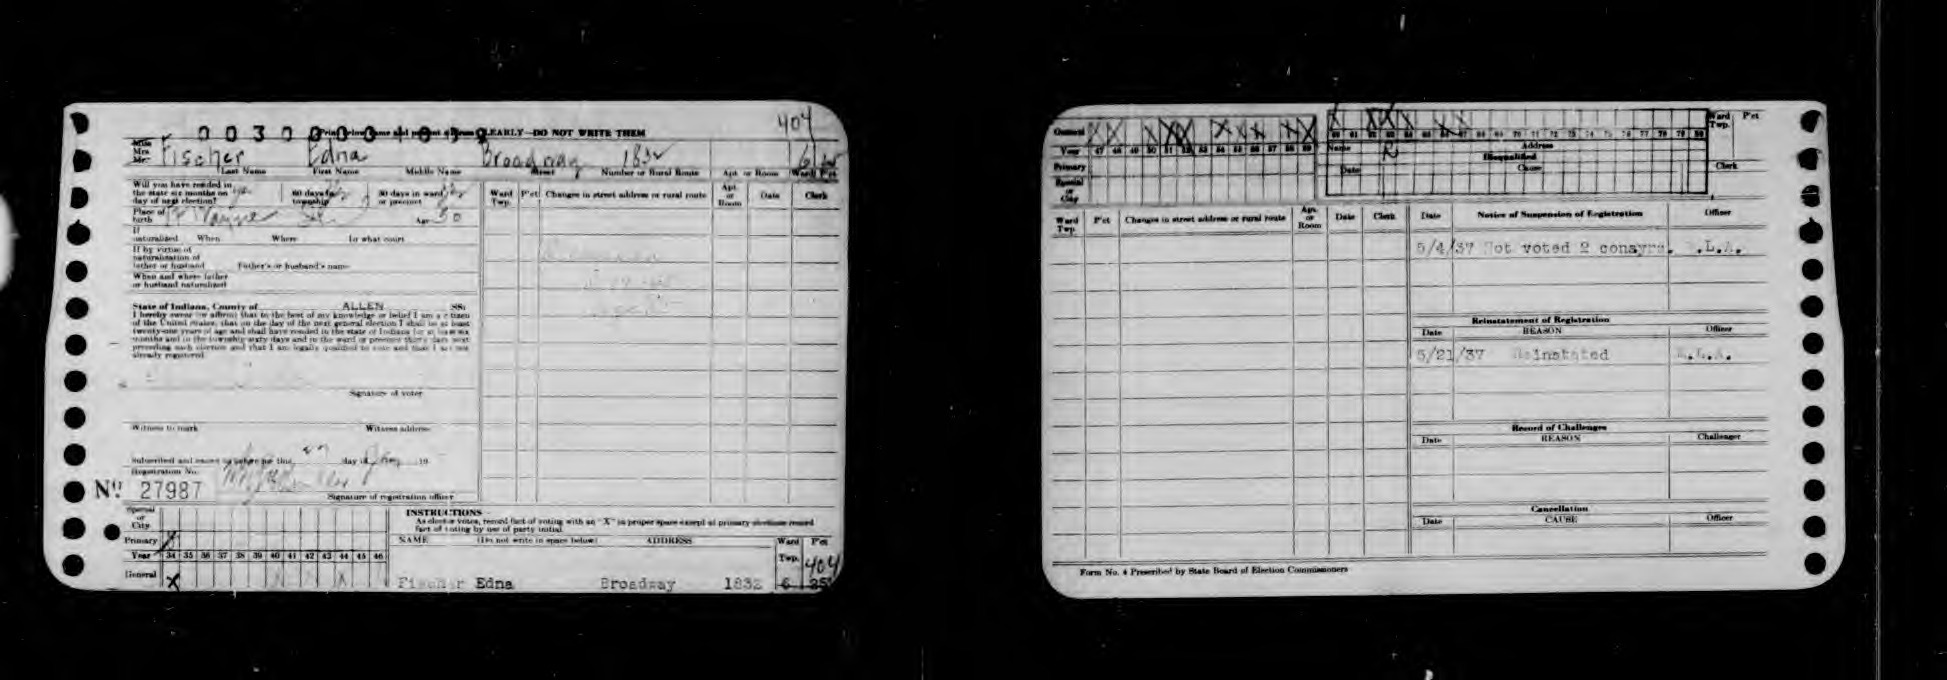 404
CLEARLY—DO NOT WRITE THEM
Miss
Mrs.
Mr.
Fischer Edna Broadway 1832 6
Last Name First Name Middle Name Street Number or Rural Route Apt. or Room Ward P'ct
Will you have resided in
the state six months on
day of next election?
60 days in
township
30 days in ward
or precinct
Place of
birth
Ft Wayne
Age 50
If
naturalized When Where In what court
If by virtue of
naturalization of
father or husband Father's or husband's name
When and where father
or husband naturalized
State of Indiana, County of ALLEN SS:
I hereby swear (or affirm) that to the best of my knowledge or belief I am a citizen
of the United States, that on the day of the next general election I shall be at least
twenty-one years of age and shall have resided in the state of Indiana for at least six
months and in the township sixty days and in the ward or precinct thirty days next
preceding such election and that I am legally qualified to vote and that I am not
already registered.
Signature of voter
Witness to mark Witness address
Subscribed and sworn to before me this day of 19
Registration No.
No 27987
Signature of registration officer
Ward
Twp.
P'ct
Changes in street address or rural route
Apt.
or
Room
Date
Clerk
Special
or
City
Primary
Year 34 35 36 37 38 39 40 41 42 43 44 45 46
General
X
INSTRUCTIONS
As elector votes, record fact of voting with an "X" in proper space except at primary elections record
fact of voting by use of party initial.
NAME (Do not write in space below) ADDRESS
Ward
Twp.
P'ct
404
Fischer Edna Broadway 1832 6
General
Year 47 48 49 50 51 52 53 54 55 56 57 58 59
Primary
Special
or
City
60 61 62 63 64 65 66 67 68 69 70 71 72 73 74 75 76 77 78 79 80
Name R Address
Disqualified
Date Cause
Ward
Twp.
P'ct
Clerk
Ward
Twp.
P'ct
Changes in street address or rural route
Apt.
or
Room
Date
Clerk
Date Notice of Suspension of Registration Officer
5/4/37 Not voted 2 consyrs. .L.A.
Reinstatement of Registration
Date REASON Officer
5/21/37 Reinstated
Record of Challenges
Date REASON Challenger
Cancellation
Date CAUSE Officer
Form No. 4 Prescribed by State Board of Election Commissioners